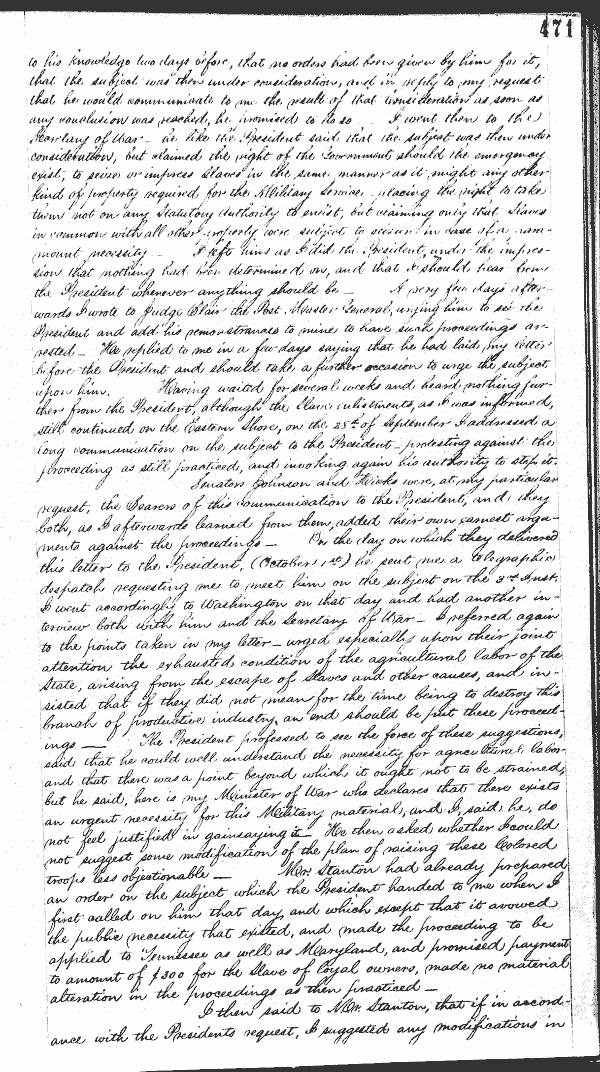 471
to his knowledge two days before, that no orders had been given by him for it,
that the subject was then under consideration, and in reply to my request
that he would communicate to me the result of that consideration as soon as
any conclusion was reached, he promised to do so I went then to the
Secretary of War – he like the President said that the subject was then under
consideration, but claimed the right of the Government should the emergency
exist, to seize or impress Slaves in the same manner as it might any other
kind of property required for the Military Service placing the right to take
them not on any Statutory Authority to enlist, but claiming only that Slaves
in common with all other property were subject to seizure in case of a para-
mount necessity – I left him as I did the President, under the impres-
sion that nothing had been determined on, and that I should hear from
the President whenever anything should be – A very few days after-
wards I wrote to Judge Blair the Post Master General, urging him to see the
President and add his remonstrances to mine to have such proceedings ar-
rested – He replied to me in a few days saying that he had laid my letter
before the President and should take a further occasion to urge the subject
upon him. Having waited for several weeks and heard nothing fur-
ther from the President, although the Slave enlistments, as I was informed,
still continued on the Eastern Shore, on the 28th of September I addressed a
long communication on the subject to the President – protesting against the
proceeding as still practiced, and invoking again his authority to stop it.
Senators Johnson and Hicks were, at my particular
request, the bearers of this communication to the President, and they
both, as I afterwards learned from them, added their own earnest argu-
ments against the proceedings – On the day on which they delivered
this letter to the President, (October 1st) he sent me a telegraphic
despatch requesting me to meet him on the subject on the 3rd Inst.
I went accordingly to Washington on that day and had another in-
terview both with him and the Secretary of War – I referred again
to the points taken in my letter – urged especially upon their joint
attention the exhausted condition of the agricultural labor of the
State, arising from the escape of Slaves and other causes, and in-
sisted that if they did not mean for the time being to destroy this
branch of productive industry, an end should be put these proceed-
ings – The President professed to see the force of these suggestions,
said that he could well understand the necessity for agricultural labor
and that there was a point beyond which it ought not to be strained,
but he said, here is my Minister of War who declares that there exists
an urgent necessity for this Military material, and I, said he, do
not feel justified in gainsaying it – He then asked whether I could
not suggest some modification of the plan of raising these Colored
troops less objectionable – Mr. Stanton had already prepared
an order on the subject which the President handed to me when I
first called on him that day, and which except that it avowed
the public necessity that existed, and made the proceeding to be
applied to Tennessee as well as Maryland, and promised payment
to amount of $300 for the Slave of loyal owners, made no material
alteration in the proceedings as then practiced –
I then said to Mr. Stanton, that if in accord-
ance with the Presidents request, I suggested any modifications in